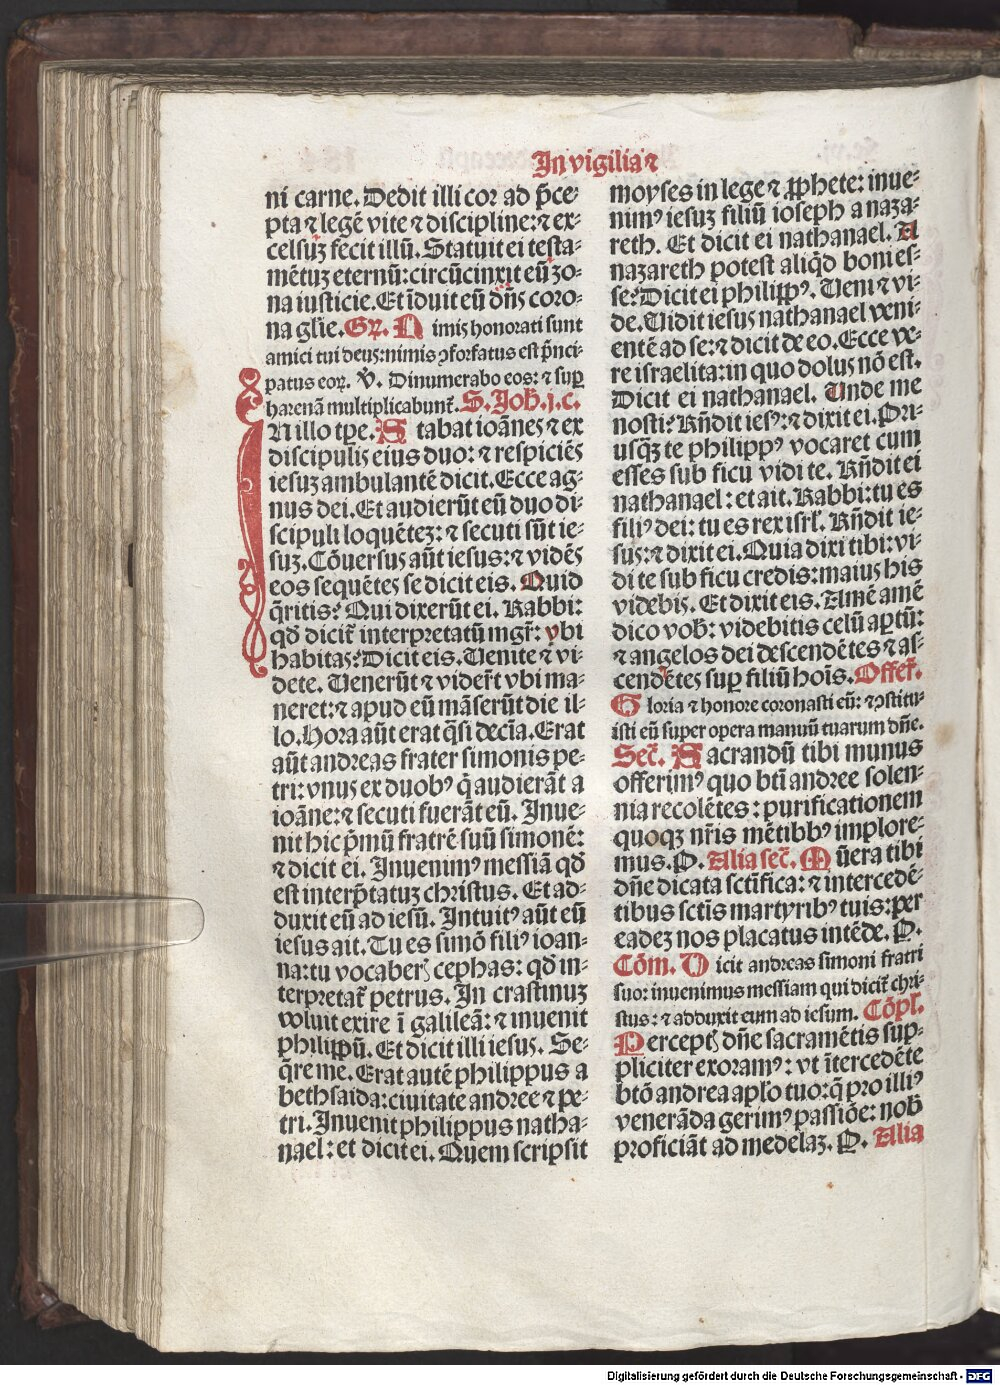 In vigilia ⁊
ni carne. Dedit illi cor ad p̄ce⸗
pta ⁊ legē vite ⁊ discipline: ⁊ ex⸗
celsuꝫ fecit illū. Statuit ei testa⸗
mētuꝫ eternū: circūcinxit eū zo⸗
na iusticie. Et īduit eū dn̄s coro⸗
na gl̄ie. Gꝝ. N imis honorati sunt
amici tui deus: nimis ꝯfortatus est p̄nci⸗
patus eoꝝ. V̄. Dinumerabo eos: ⁊ suꝑ
harenā multiplicabunt᷑. S. Joh̄. j. c.
IN illo tp̄e. S tabat ioānes ⁊ ex
discipulis eius duo: ⁊ respiciēs
iesuꝫ ambulantē dicit. Ecce ag⸗
nus dei. Et audierūt eū duo di⸗
scipuli loquētez: ⁊ secuti sūt ie⸗
suꝫ. Cōuersus aūt iesus: ⁊ vidēs
eos sequētes se dicit eis. Quid
q̄ritis? Qui dixerūt ei. Rabbi:
qd̄ dicit᷑ interpretatū mgr̄: vbi
habitas? Dicit eis. Uenite ⁊ vi⸗
dete. Uenerūt ⁊ vider̄t vbi ma⸗
neret: ⁊ apud eū māserūt die il⸗
lo. Hora aūt erat q̄si deciā. Erat
aūt andreas frater simonis pe⸗
tri: vnus ex duobꝰ q̄ audierāt a
ioāne: ⁊ secuti fuerāt eū. Inue⸗
nit hic p̄mū fratrē suū simonē:
⁊ dicit ei. Inuenimꝰ messiā qd̄
est interp̄tatuꝫ christus. Et ad⸗
duxit eū ad iesū. Intuitꝰ aūt eū
iesus ait. Tu es simō filiꝰ ioan⸗
na: tu vocaberꝭ cephas: qd̄ in⸗
terpretat᷑ petrus. In crastinuꝫ
voluit exire ī galileā: ⁊ inuenit
philippū. Et dicit illi iesus. Se⸗
q̄re me. Erat autē philippus a
bethsaida: ciuitate andree ⁊ pe⸗
tri. Inuenit philippus natha⸗
nael: et dicit ei. Quem scripsit
moyses in lege ⁊ ꝓphete: inue⸗
nimꝰ iesuꝫ filiū ioseph a naza⸗
reth. Et dicit ei nathanael. A
nazareth potest aliqd̄ boni es⸗
se? Dicit ei philippꝰ. Ueni ⁊ vi⸗
de. Uidit iesus nathanael veni⸗
entē ad se: ⁊ dicit de eo. Ecce ve⸗
re israelita: in quo dolus nō est.
Dicit ei nathanael. Unde me
nosti? Rn̄dit iesꝰ: ⁊ dixit ei. Pri⸗
usqꝫ te philippꝰ vocaret cum
esses sub ficu vidi te. Rn̄dit ei
nathanael: et ait. Rabbi: tu es
filiꝰ dei: tu es rex isrl̄. Rn̄dit ie⸗
sus: ⁊ dixit ei. Quia dixi tibi: vi⸗
di te sub ficu credis: maius his
videbis. Et dixit eis. Amē amē
dico vob̄: videbitis celū aꝑtū:
⁊ angelos dei descendētes ⁊ as⸗
cendētes suꝑ filiū hoīs. Offer̄.
G loria ⁊ honore coronasti eū: ⁊ ꝯstitu⸗
isti eū super opera manuū tuarum dn̄e.
Sec̄. S acrandū tibi munus
offerimꝰ quo bt̄i andree solen⸗
nia recolētes: purificationem
quoqꝫ nr̄is mētibꝰ implore⸗
mus. P. Alia sec̄. M ūera tibi
dn̄e dicata sct̄ifica: ⁊ intercedē⸗
tibus sct̄is martyribꝰ tuis: per
eadeꝫ nos placatus intēde. P.
Cōm. D icit andreas simoni fratri
suo: inuenimus messiam qui dicit᷑ chri⸗
stus: ⁊ adduxit eum ad iesum. Cōpl̄.
P erceptꝭ dn̄e sacramētis sup⸗
pliciter exoramꝰ: vt ītercedēte
btō andrea apl̄o tuo: q̄ pro illiꝰ
venerāda gerimꝰ passiōe: nob̄
proficiāt ad medelaꝫ. P. Alia
Digitalisierung gefördert durch die Deutsche Forschungsgemeinschaft - DFG